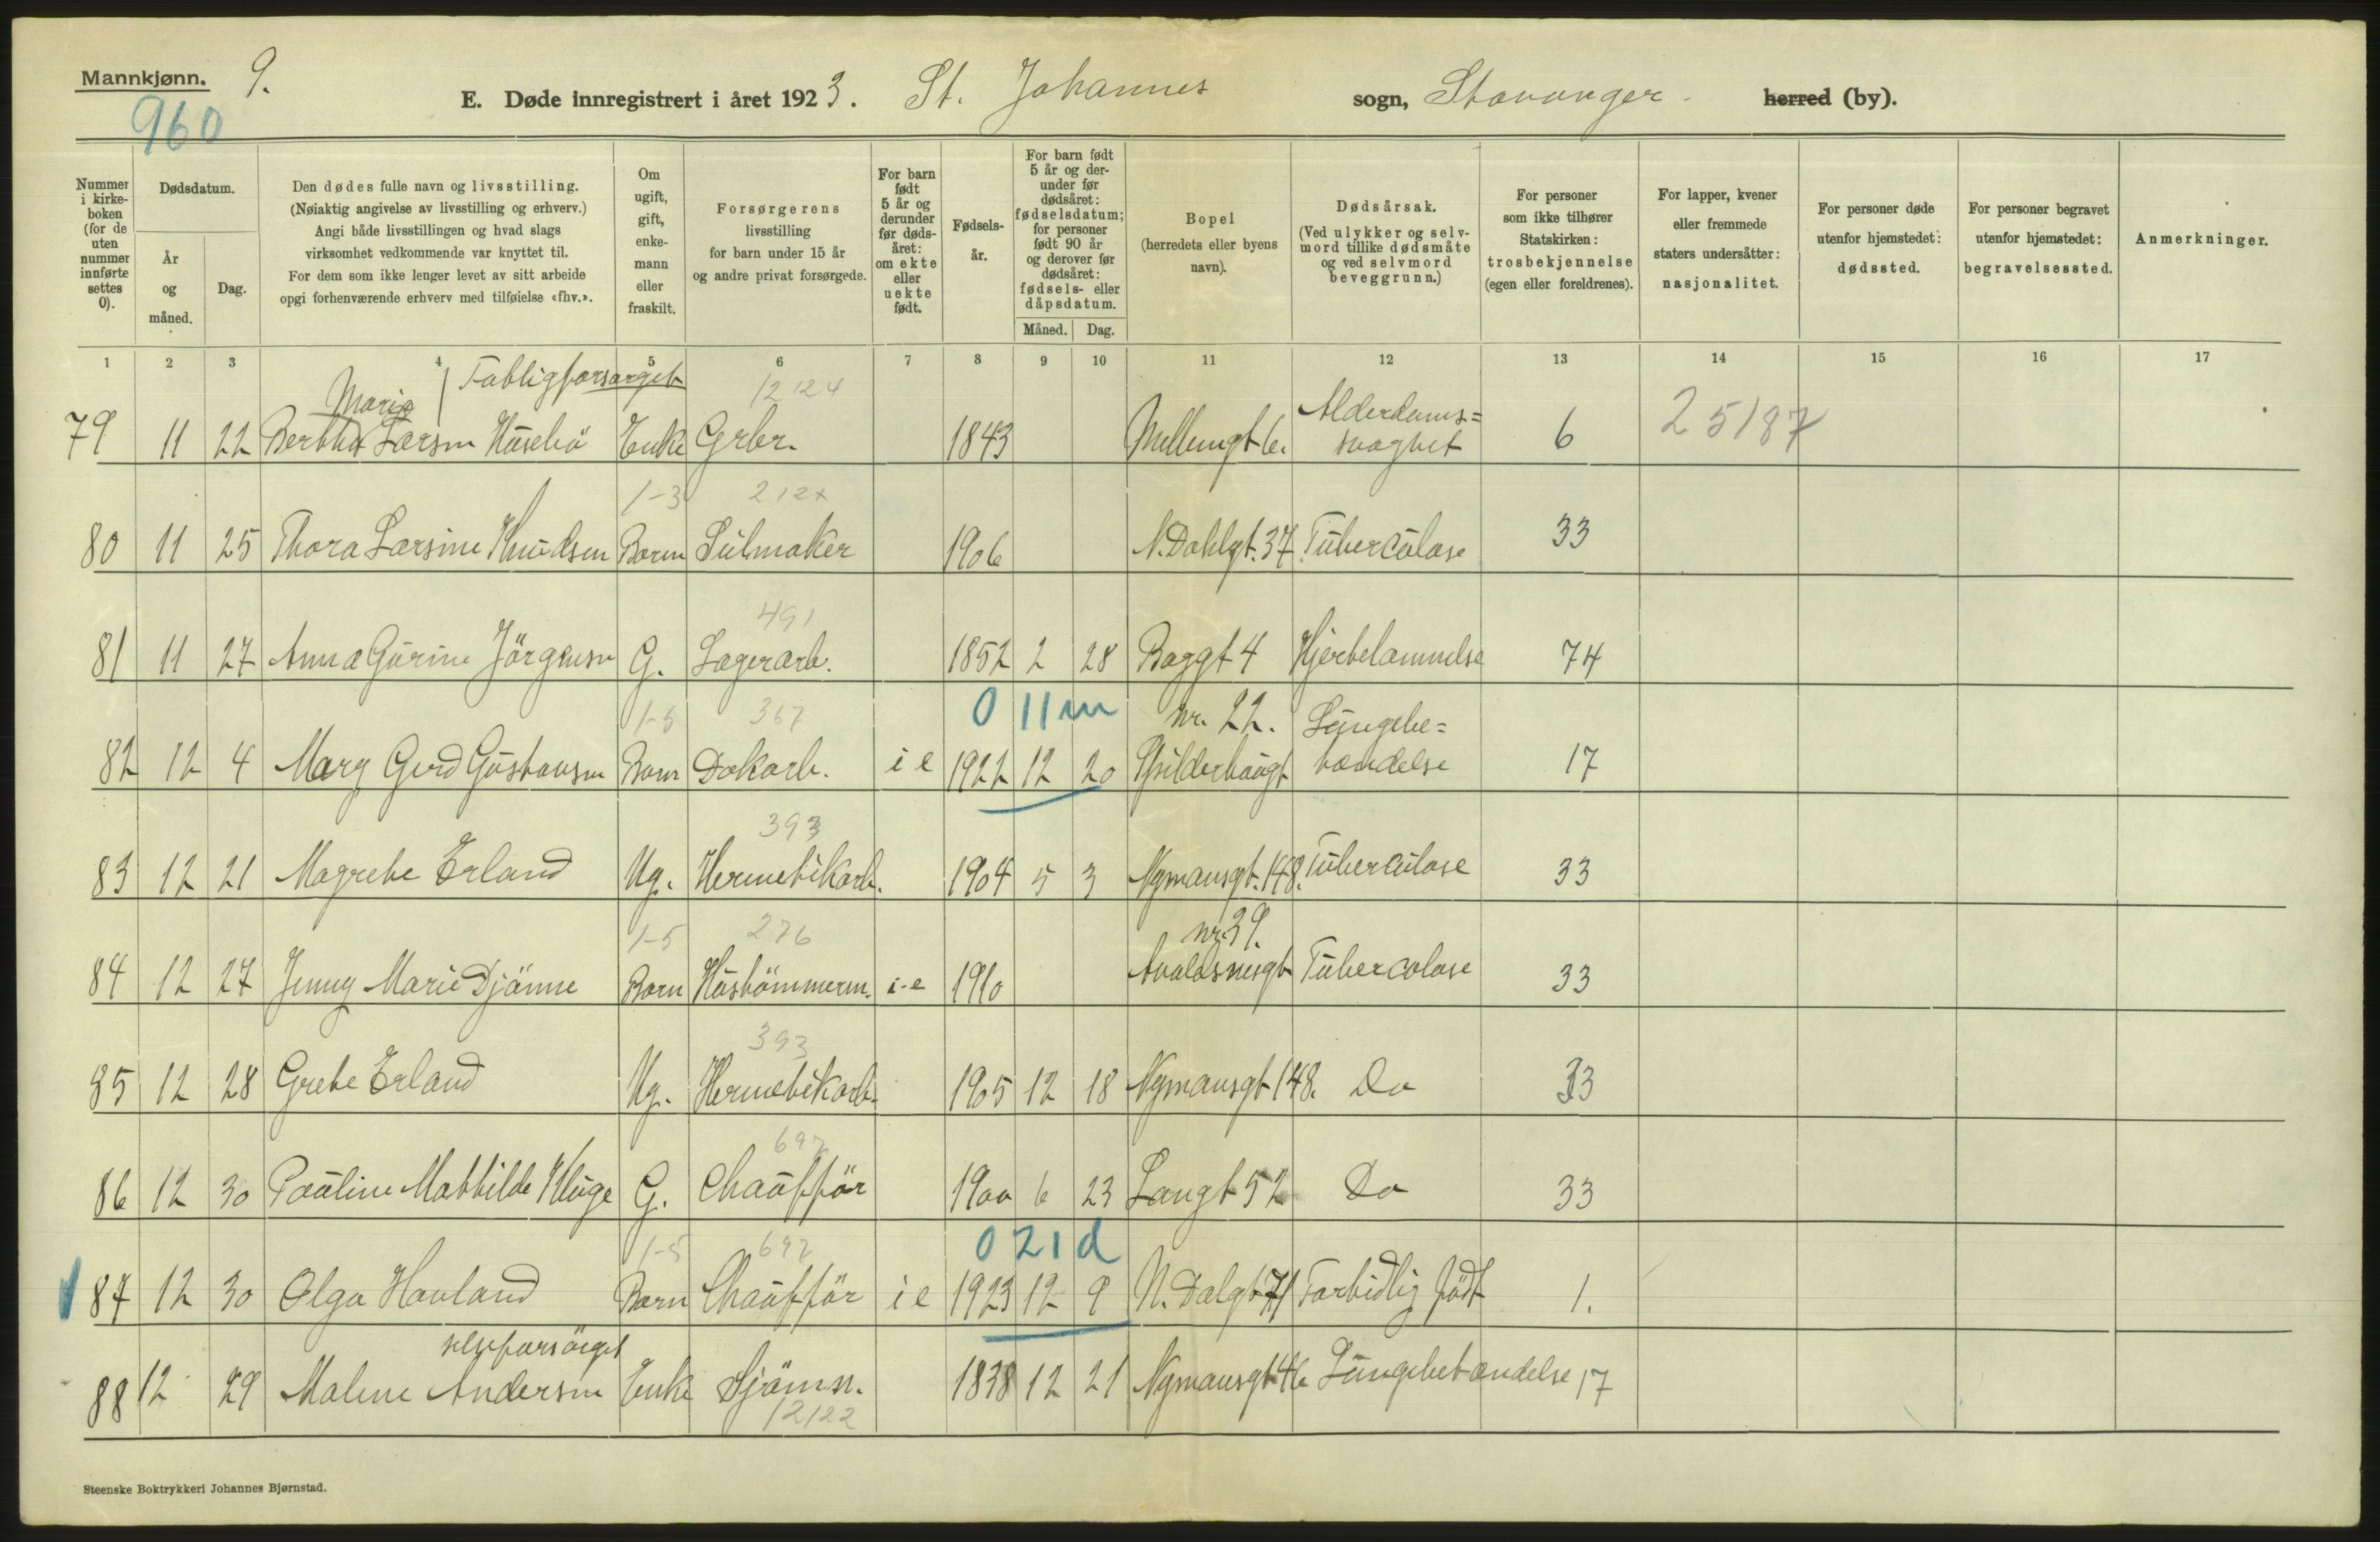 Mannkjønn. 9.
960
E. Døde innregistrert i året 1923. St. Johannes sogn, Stavanger herred (by).
Nummer i kirke-boken (for de uten nummer innførte settes 0).
Dødsdatum.
År og måned.
Dag.
Den dødes fulle navn og livsstilling.
(Nøiaktig angivelse av livsstilling og erhverv.)
Angi både livsstillingen og hvad slags
virksomhet vedkommende var knyttet til.
For dem som ikke lenger levet av sitt arbeide
opgi forhenværende erhverv med tilføielse «fhv.».
Om ugift, gift, enke-mann eller fraskilt.
Forsørgerens
livsstilling
for barn under 15 år
og andre privat forsørgede.
For barn født 5 år og derunder før døds-året: om ekte eller uekte født.
Fødsels-år.
For barn født 5 år og der-under før dødsåret: fødselsdatum; for personer født 90 år og derover før dødsåret: fødsels- eller dåpsdatum.
Måned. Dag.
Bopel
(herredets eller byens
navn).
Dødsårsak.
(Ved ulykker og selv-
mord tillike dødsmåte
og ved selvmord
beveggrunn.)
For personer
som ikke tilhører
Statskirken:
trosbekjennelse
(egen eller foreldrenes).
For lapper, kvener
eller fremmede
staters undersåtter:
nasjonalitet.
For personer døde
utenfor hjemstedet:
dødssted.
For personer begravet
utenfor hjemstedet:
begravelsessted.
Anmerkninger.
1 2 3 4 5 6 7 8 9 10 11 12 13 14 15 16 17
Maria Fattigforsørget 12124
79 11 22 Bertha Larsen Håsebö Enke Grbr. 1843 Mellemgt 6. Alderdoms=svaghet 6 25187
1-3 212x
80 11 25 Thora Larsine Knudsen Barn Seilmaker 1906 N. Dahlgt. 37 Tuberculose 33
491
81 11 27 Anna Gurine Jörgensen G. Lagerarb. 1852 2 28 Baggt 4 Hjertelammelse 74
1-5 367 0 11 m nr. 22. Lungebe=
82 12 4 Mary Gerd Gustavsen Barn Dokarb. i e 1922 12 20 Spilderhaugt tændelse 17
393
83 12 21 Magrete Erland Ug. Hermetikarb. 1904 5 3 Nymansgt. 148. Tuberculose 33
1-5 276 nr 39.
84 12 27 Jenny Marie Djänne Barn Hústömmerm. i-e 1910 Avaldsnesgt Tubercolose 33
393
85 12 28 Grete Erland Ug. Hermetikarb. 1905 12 18 Nymansgt 148. Do 33
692
86 12 30 Pauline Mathilde Kluge G. Chaufför 1900 6 23 Langt 52 Do 33
1-5 692 0 21 d
87 12 30 Olga Havland Barn Chaufför i e 1923 12 9 N. Dalgt 71 Fortidlig födt 1.
selvforsörget
88 12 29 Malene Andersen Enke Sjömn. 1838 12 21 Nymansgt 46 Lungebetændelse 17
12122
Steenske Boktrykkeri Johannes Bjørnstad.